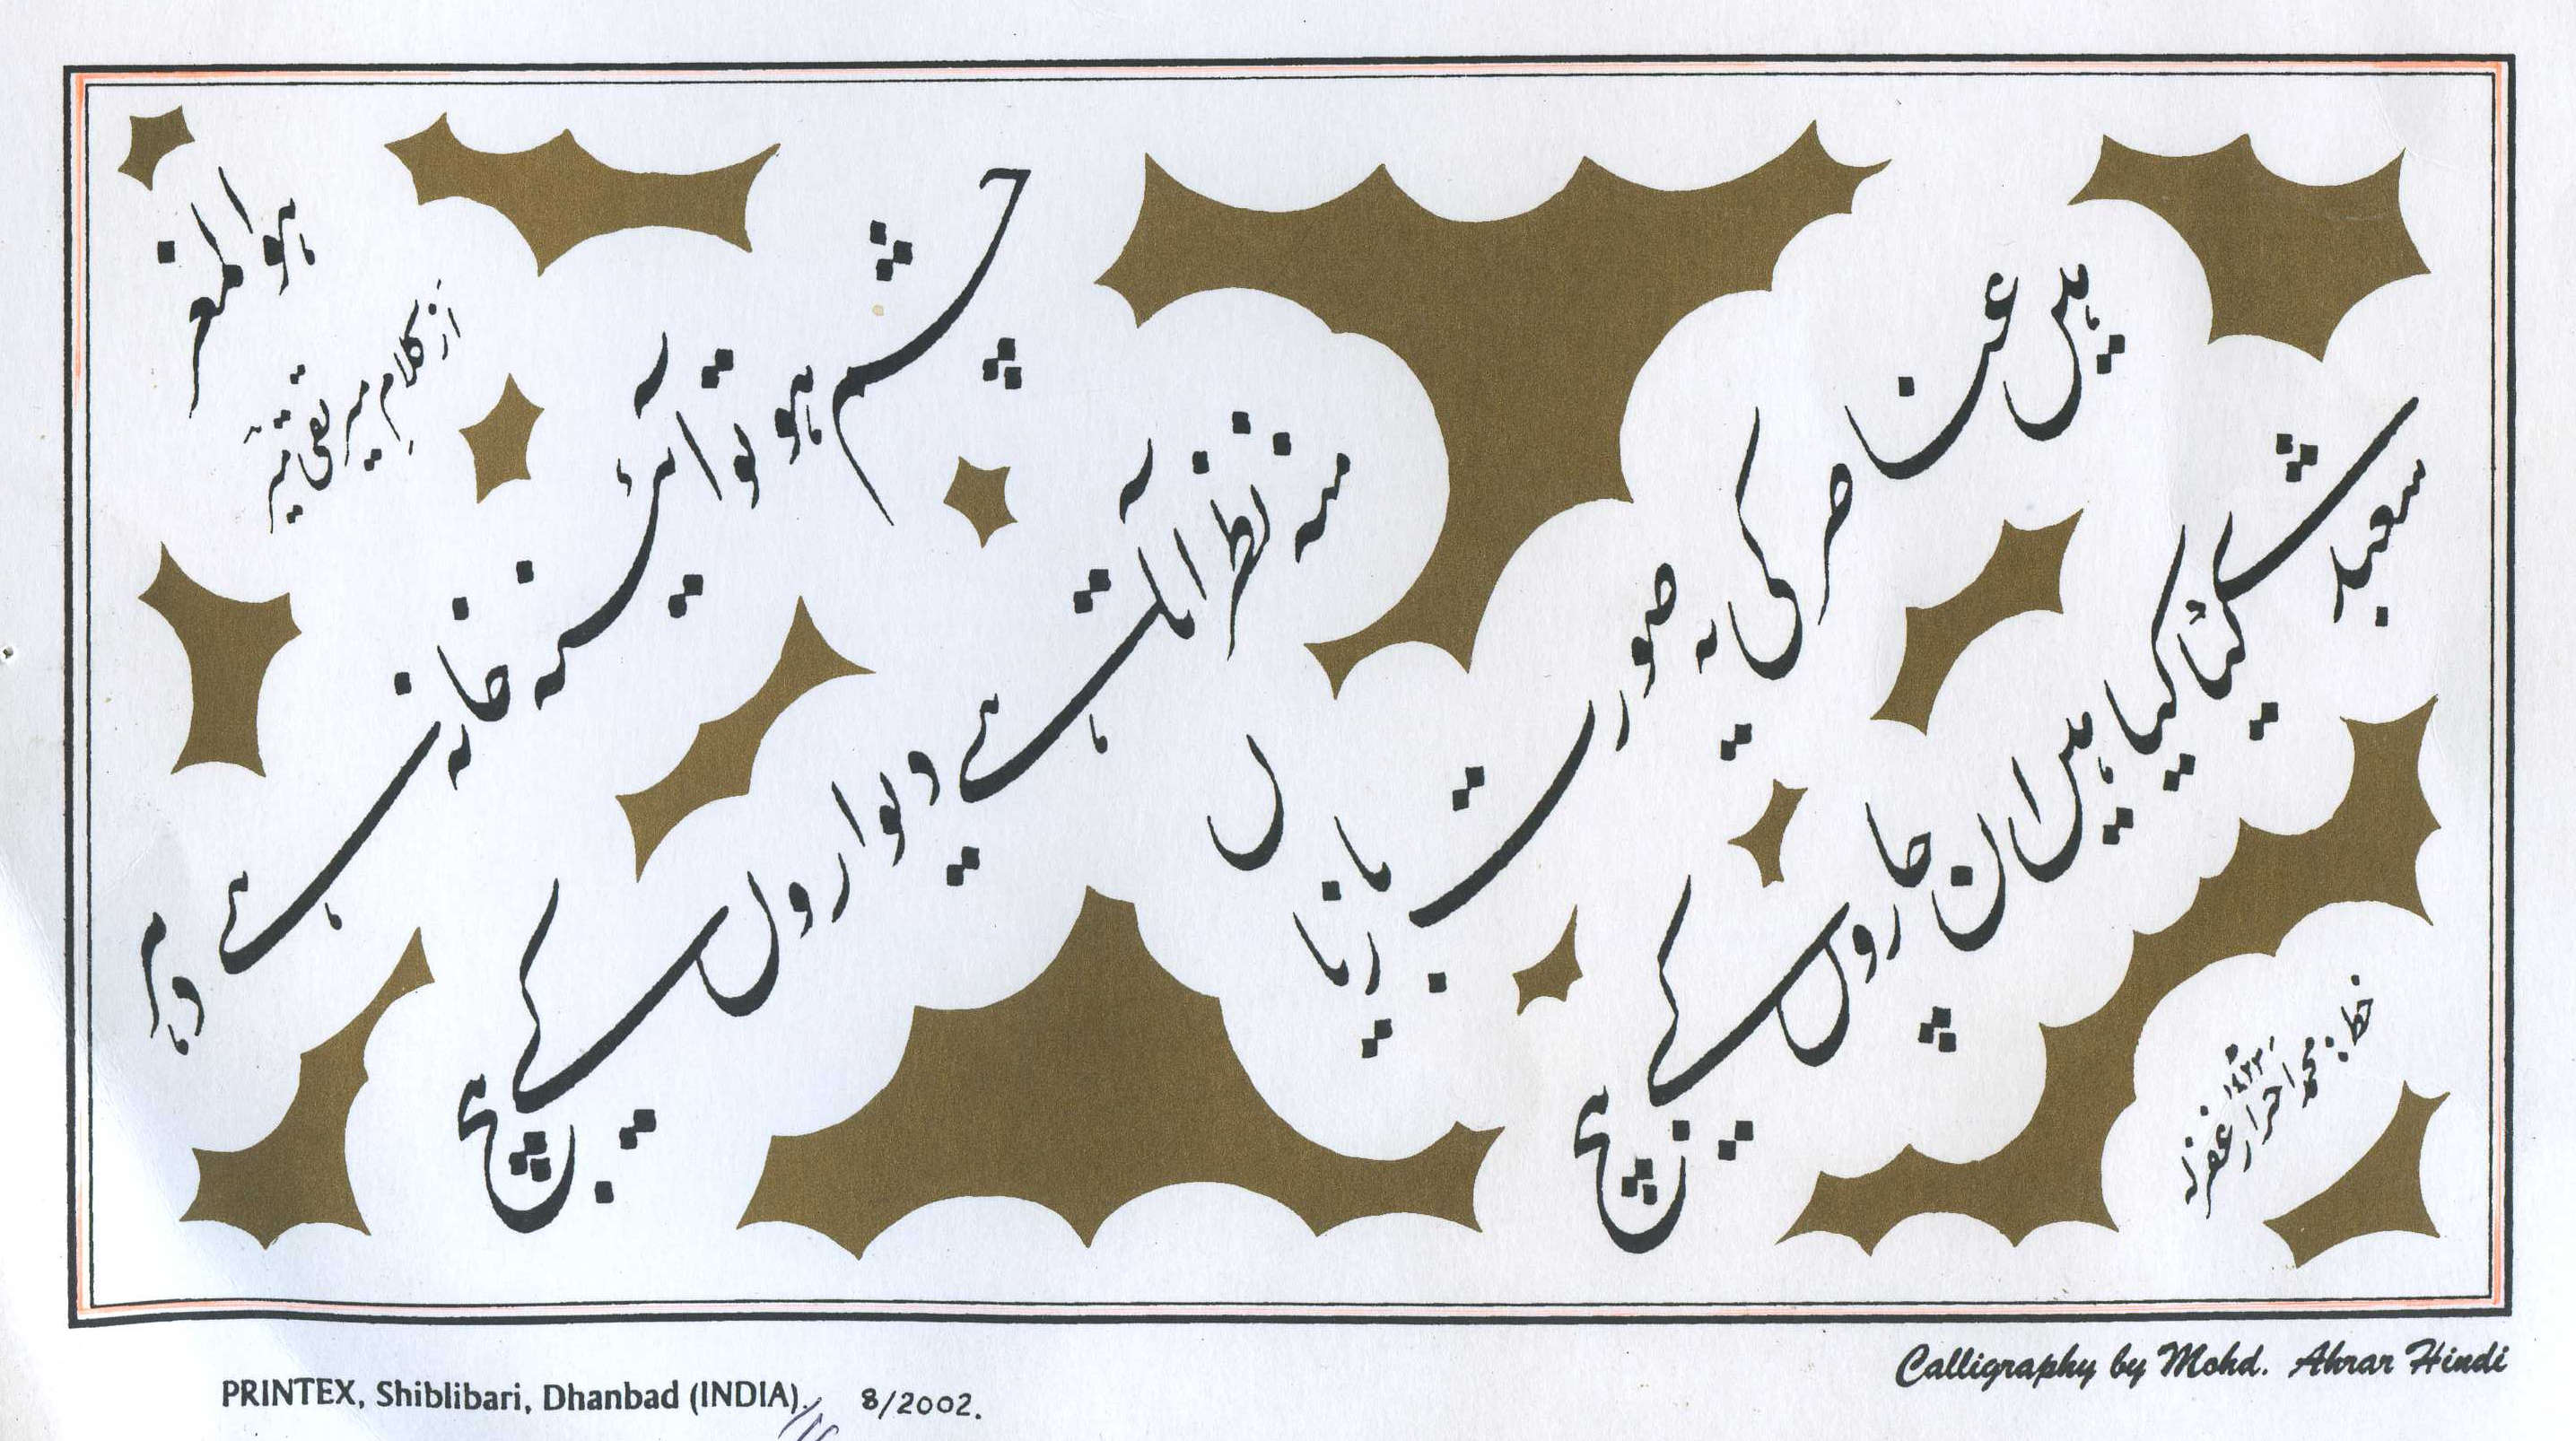 ہوالمعز
از کلامِ میر تقی میرؔ
چشم ہو تو آئینہ خانہ ہے دہر
منہ نظر آتا ہے دیواروں کے بیچ
ہیں عناصر کی یہ صورت بازیاں
شعبدے کیا کیا ہیں ان چاروں کے بیچ
خط: محمد احرار غفرلہ ۱۴۲۳ھ
Calligraphy by Mohd. Ahrar Hindi
PRINTEX, Shiblibari, Dhanbad (INDIA). 8/2002.